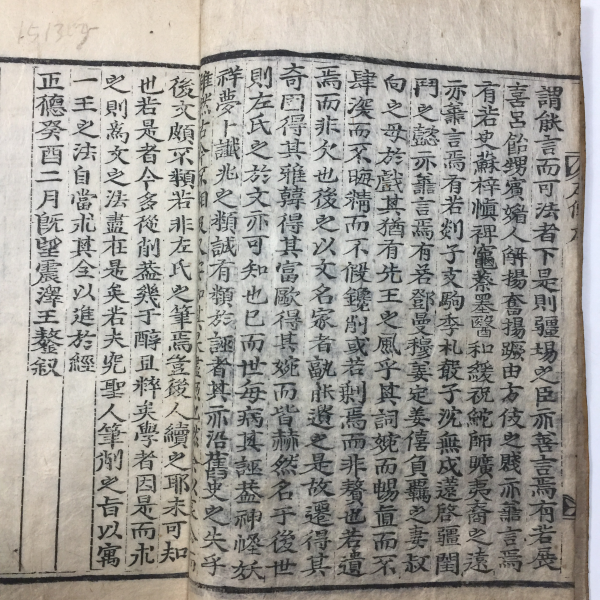 謂䏻言而可法者下是則疆埸之臣亦善言焉有若展
喜呂飴甥賔媚人解揚奮揚蹶由方伎之賤亦善言焉
有若史蘇梓愼裨竈蔡墨醫和緩祝鮀師曠夷裔之遠
亦善言焉有若郯子支駒季札聲子沈無戌薳啓疆閨
門之懿亦善言焉有若鄧曼穆姜定姜僖負羈之妻叔
向之母於戲其猶有先王之風乎其詞婉而暢直而不
肆深而不晦精而不假鑱削或若剩焉而非贅也若遺
焉而非欠也後以文名家者孰䏻遺之是故遷得其
奇固得其雅韓得其富歐得其婉而皆赫然名于後世
則左氏之於文亦可知也已而世每病其誣蓋神怪妖
祥夢卜讖兆之類誠有類於誣者其亦沿舊史之失乎
雖然古今不相
後文頗不類若非左氏之筆焉豈後人續之耶未可知
也若是者今多從削蓋幾于醇且粹矣學者因是而求
之則爲文之法盡在是矣若夫究聖人筆削之旨以寓
一王之法自當求其全以進於經
正德癸酉二月旣望震澤王鏊叙